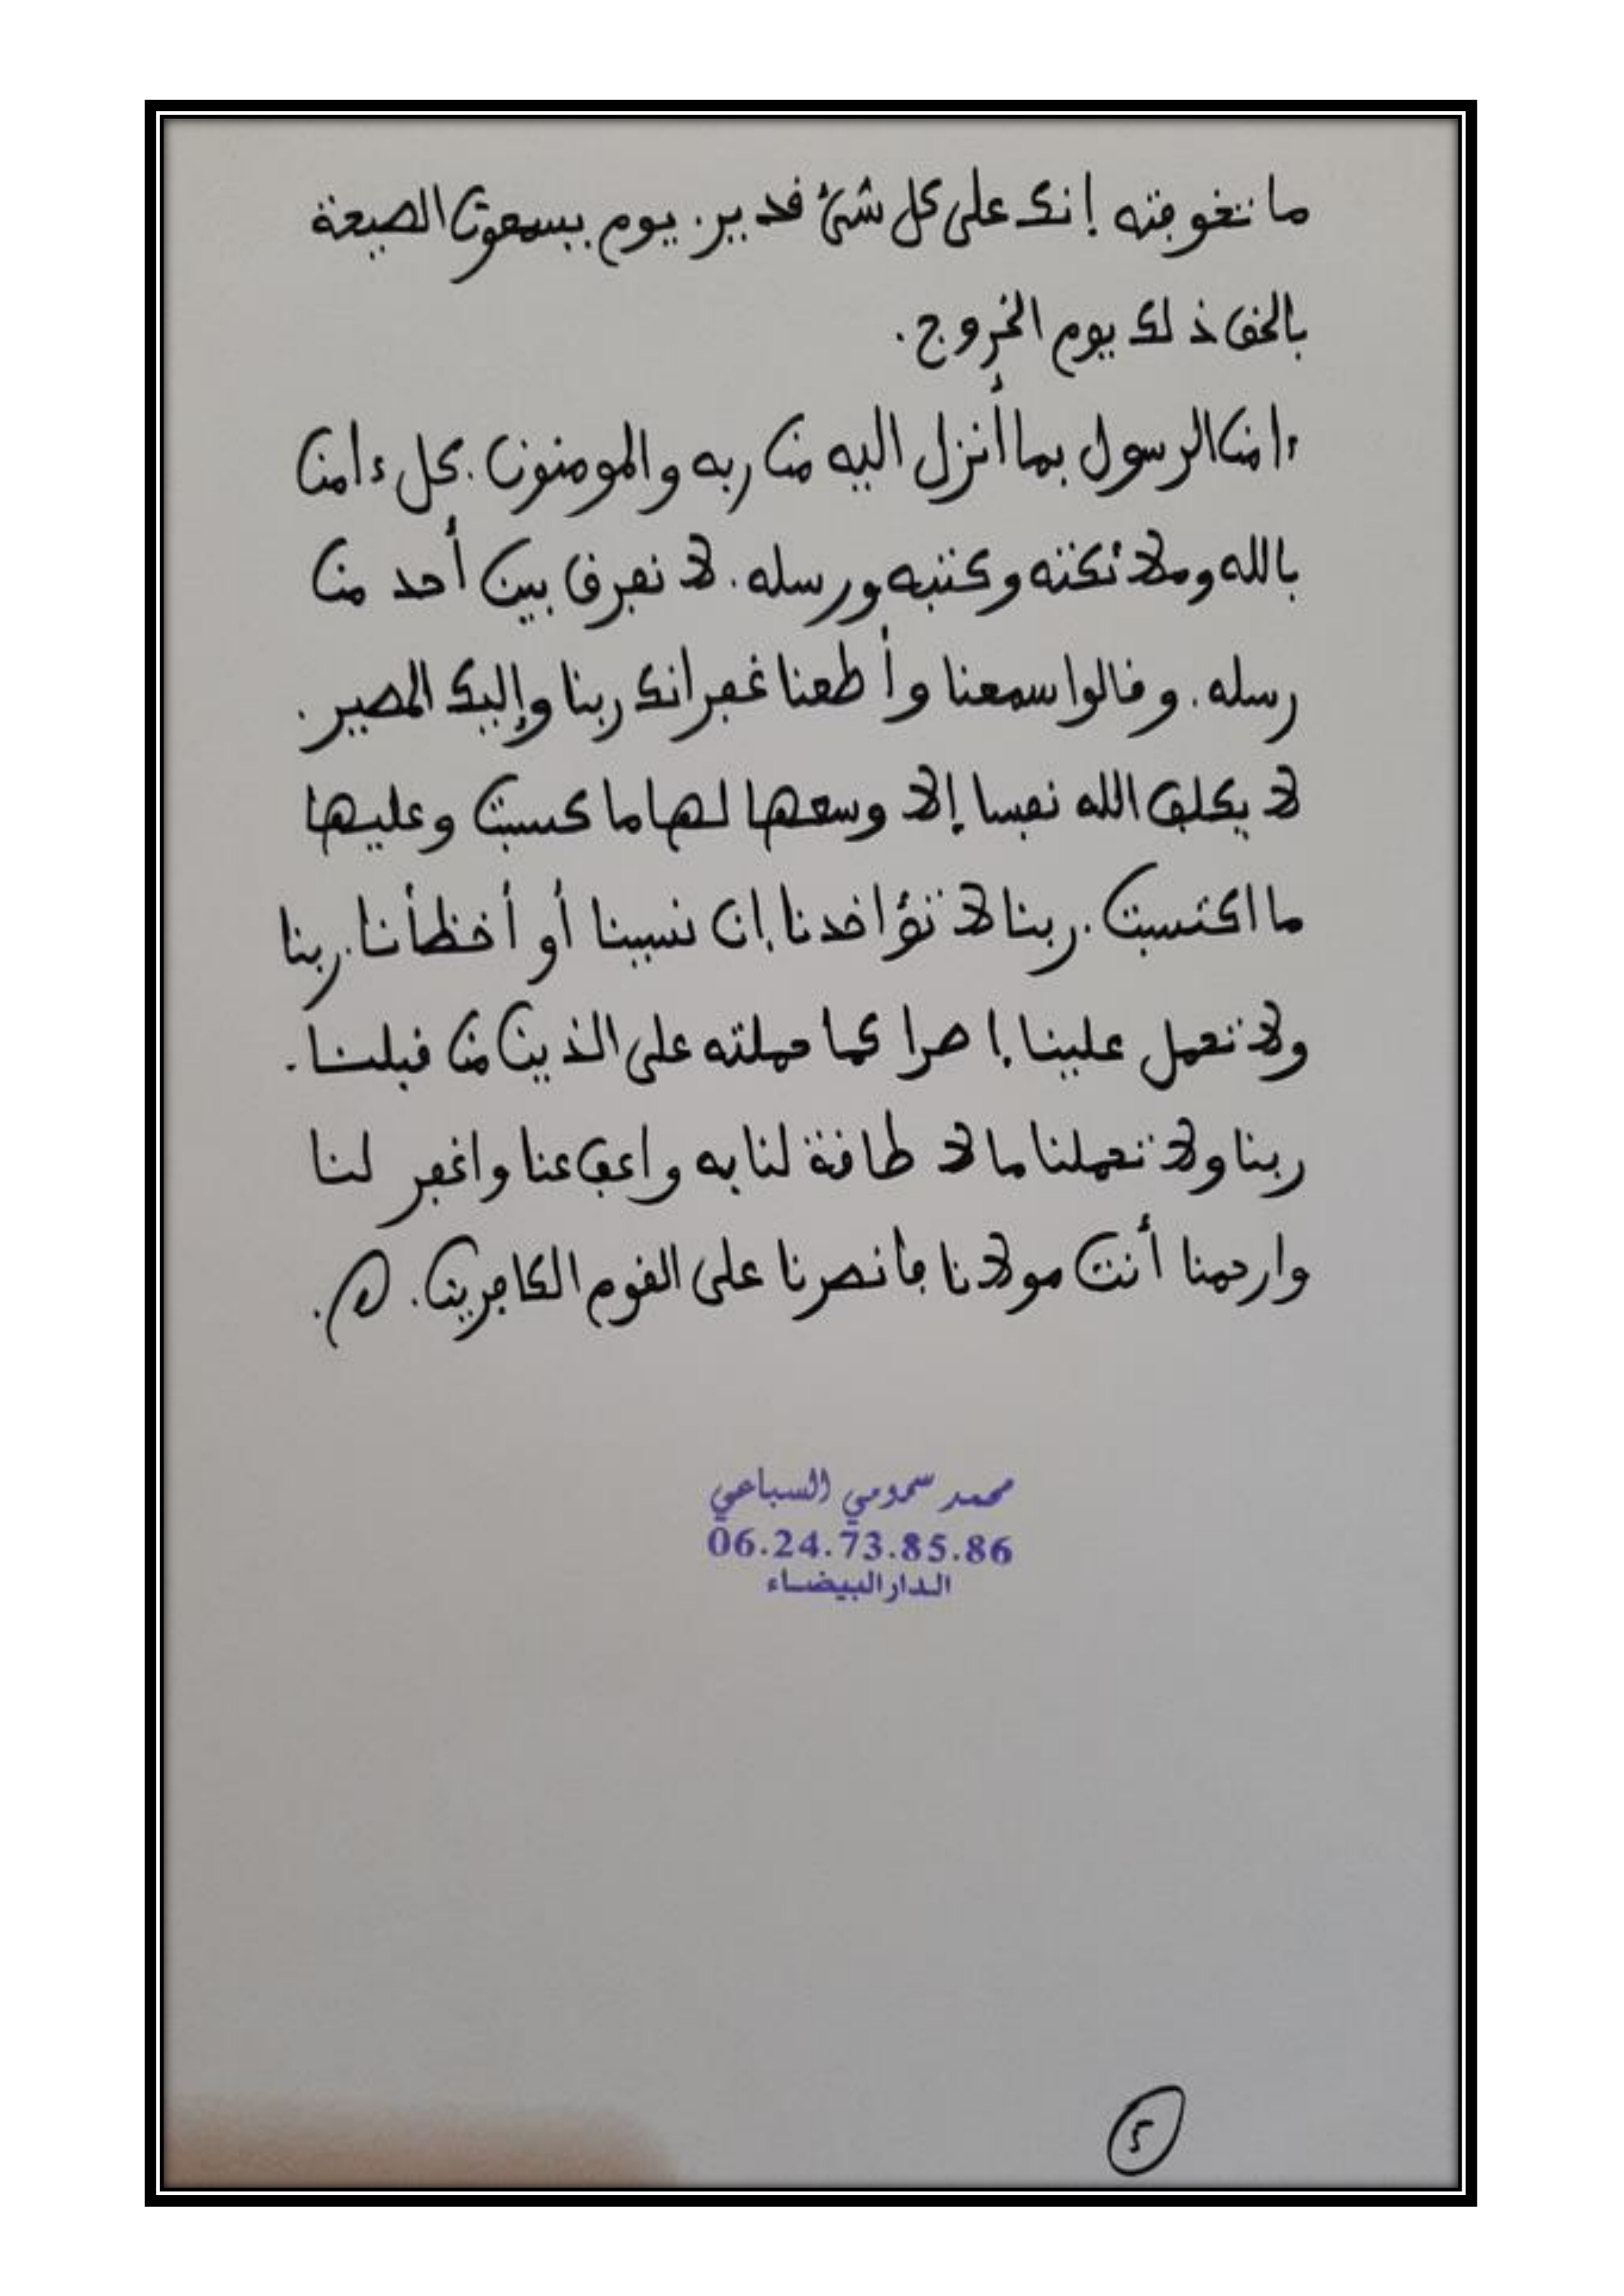 ما تغوفته إنك على كل شئ قدير. يوم يسمعون الصيحة
بالحق ذلك يوم الخروج.
ءامن الرسول بما أنزل اليه من ربه والمومنون. كل ءامن
بالله وملائكته وكتبه ورسله. لا نفرق بين أحد من
رسله. وقالوا سمعنا وأطعنا غفرانك ربنا وإليك المصير.
لا يكلف الله نفسا إلا وسعها لها ما كسبت وعليها
ما اكتسبت. ربنا لا تؤاخدنا إن نسينا أو أخطأنا. ربنا
ولا تحمل علينا إصرا كما حملته على الذين من قبلنا.
ربنا ولا تحملنا ما لا طاقة لنا به واعف عنا واغفر لنا
وارحمنا أنت مولانا فأنصرنا على القوم الكافرين. اه.
محمد سمومي السباعي
06.24.73.85.86
الدار البيضاء
5